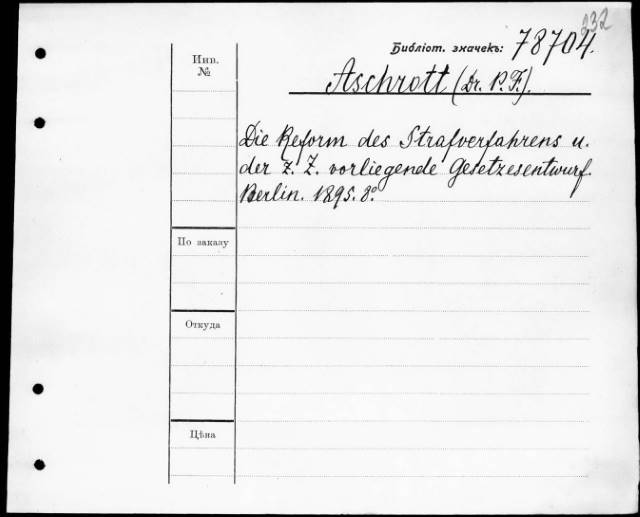 232
Библіот. значекъ: 78704.
Инв. №
Aschrott (Dr. P. F.).
Die Reform des Strafverfahrens u.
der z. Z. vorliegende Gesetzesentwurf.
Berlin. 1895. 8º.
По заказу
Откуда
Цѣна